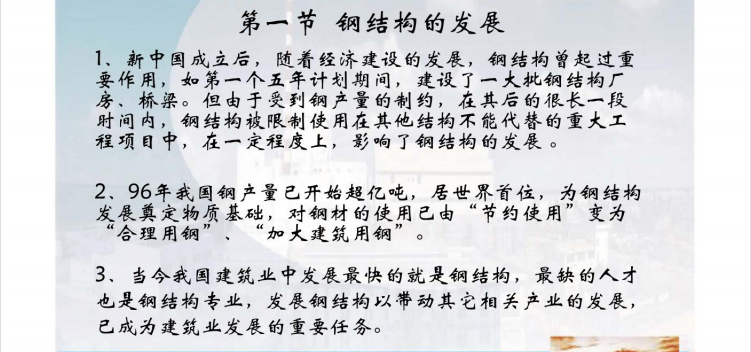 第一节 钢结构的发展
1、新中国成立后，随着经济建设的发展，钢结构曾起过重
要作用，如第一个五年计划期间，建设了一大批钢结构厂
房、桥梁。但由于受到钢产量的制约，在其后的很长一段
时间内，钢结构被限制使用在其他结构不能代替的重大工
程项目中，在一定程度上，影响了钢结构的发展。
2、96年我国钢产量已开始超亿吨，居世界首位，为钢结构
发展奠定物质基础，对钢材的使用已由“节约使用”变为
“合理用钢”、“加大建筑用钢”。
3、当今我国建筑业中发展最快的就是钢结构，最缺的人才
也是钢结构专业，发展钢结构以带动其它相关产业的发展，
已成为建筑业发展的重要任务。